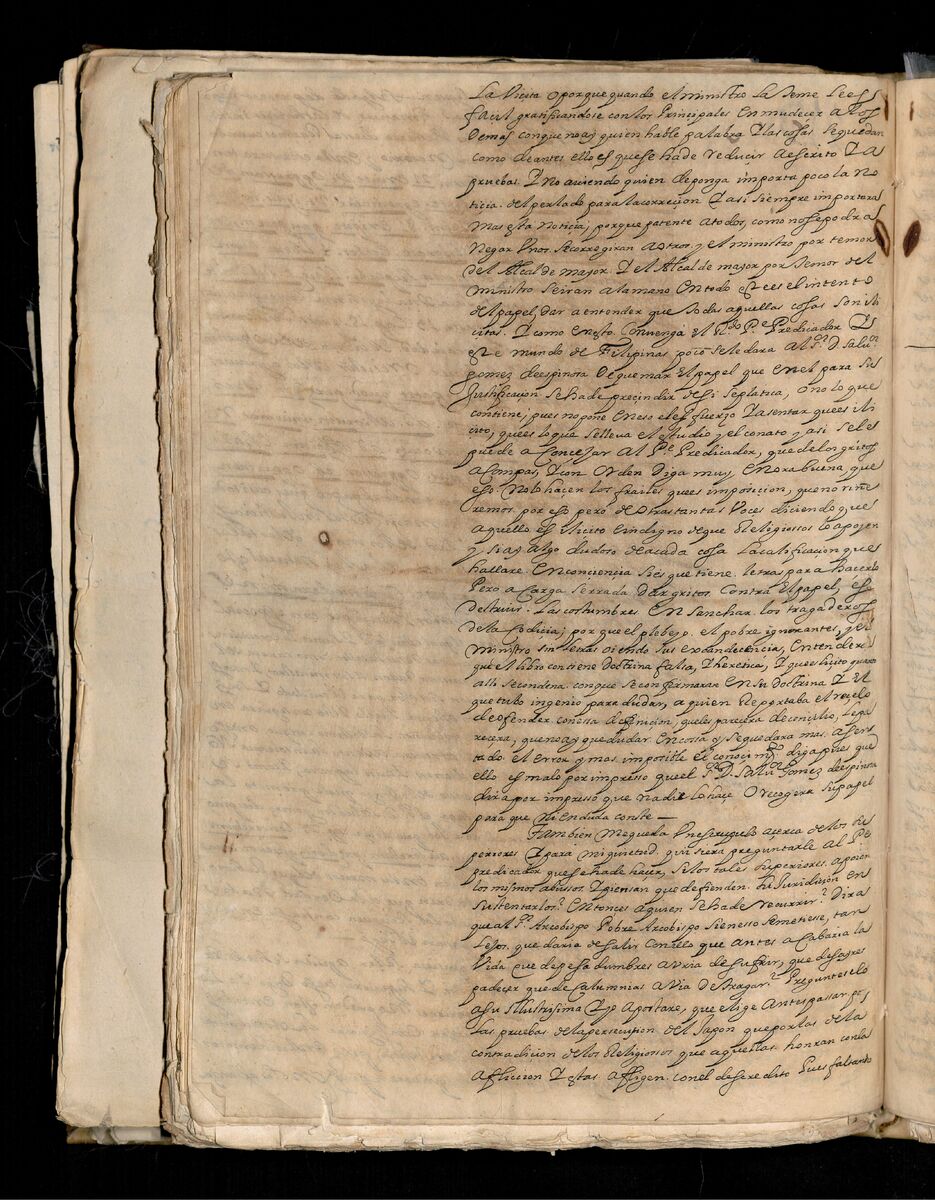 La Visita o porque quando el ministro la teme le es
facil gratificandose con los Principales enmudecer a los
demas conque no ay quien hable palabra y las cosas se quedan
como de antes ello es que se ha de reducir a escrito y a
pruebas. Y no aviendo quien deponga importa poco la no
ticia. del perlado para la correcion y asi siempre importara
mas esta noticia, porque patente a todos, como no se podra
negar Unos se corregiran a otros, y el ministro por temor
del Alcalde mayor. Y el Alcalde mayor por temor del
ministro se iran a la mano en todo este es el intento
del papel, dar a entender que todas aquellas cosas son ili
citas. Y como en esto convenga el R.do P.e Predicador y
este mundo de Filipinas poco se le dara al S.r D. Salu.or
gomez de espinosa de quemar el papel que en el para su
Justificacion se ha de precindir de si se platica, o no lo que
contiene; pues no pone en eso el esfuerço y asentar que es ili
cito, que es lo que se lleva el estudio y el conato y asi se les
puede a Concejar al P.e Predicador, que de los gritos
a Compas, y con Orden diga muy enorabuena, que
eso. No lo haçen los frailes que es imposicion, que no riñe
remos por eso pero de otras tantas voces diciendo que
aquello es ilicito e indigno de que Religiossos lo apoyen
y si ay algo dudoso de a cada cosa la calificacion que
hallare. En conciencia si es que tiene. letras para hacerlo
Pero a Carga serrada dar gritos. Contra el papel, es
destruir. Las costumbres. Ensanchar. los tragaderos
de la Codiçia; por que el plebeyo. el pobre ignorantes, y el
ministro sin letras oiendo sus exandecencia, entendera
que el libro contiene doctrina falsa, y heretica, y que es licito quanto
alli se condena. conque se confermaran en su doctrina y el
que tubo ingenio para dudar, a quien reportaba el reçelo
de ofender con esta definicion, que les parecera de concilio, le pa
reçera, que no ay que dudar. En cossa y se quedara mas. asen
tado. el error y mas. imposible el conocim.to diga pues que
ello es malo por impresso que el S.r D. Salu.or Gomez de espinosa
dira por impresso que nadie lo haçe O recogera su papel
para que ni en duda conste —
Tambien me queda Un escrupulo açerca de los su
periores y para mi quietud. quisiera preguntarle al P.e
predicador que se ha de haçer, si los tales superiores. apoian
los mismos abussos. y piensan que defienden. su Juridicion en
sustentarlos? Entonces a quien se ha de recurrir? Dira
que al S.r Arcobispo Pobre Arcobispo si en esso se metiesse, tan
lejos. que daria de salir con ello que antes a Cabaria la
Vida que de pesadumbres avria de sufrir, que desaires
padecer que de calumnias avia de tragar? Pregunteselo
a su Illustrisima y yo apostare, que elige antes passar por
las pruebas de la persecution del Japon que por las de la
contradicion de los Religiosos que aquellas honran con la
afliccion y estas afligen. con el descredito Pues faltando